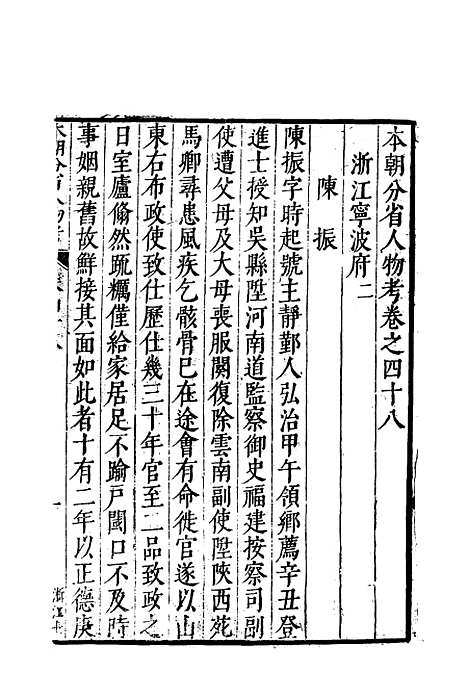 本朝分省人物考卷之四十八
浙江寧波府二
陳振
陳振字時起號主靜鄞人弘治甲午領鄉薦辛丑登
進士授知吳縣陞河南道監察御史福建按察司副
使遭父母及大母喪服闋復除雲南副使陞陝西苑
馬卿尋患風疾乞骸骨巳在途會有命徙官遂以山
東右布政使致仕歷仕幾三十年官至二品致政之
日室廬翛然䟽糲僅給家居足不踰戶閾口不及時
事姻親舊故鮮接其面如此者十有二年以正德庚
本朝分省人物考
一
浙江